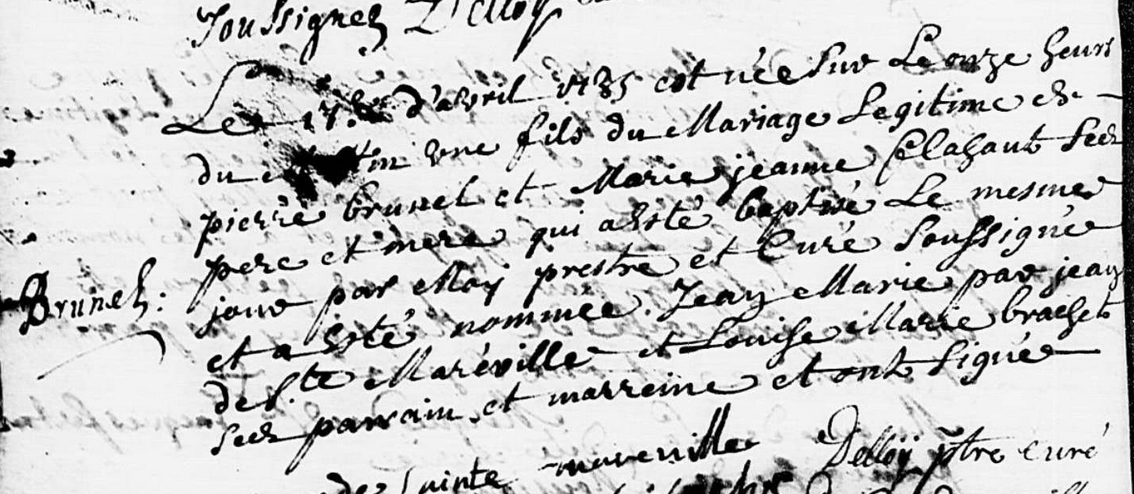 soussignez Delloÿ
Le 17.e d'avril 1735 est née sur Le onze heurs
du in une fils du Mariage Legitime de
pierre brunel et Marie jeanne ses
pere et mere qui a esté baptisé Le mesme
Brunel: jour par Moy prestre et Curé soussignée
et a esté nommée. Jean Marie par jean
de s.te Maréville et Louise Marie brachet
ses parrain et marreine et ont signée
de sainte mareville Delloÿ ptre curé